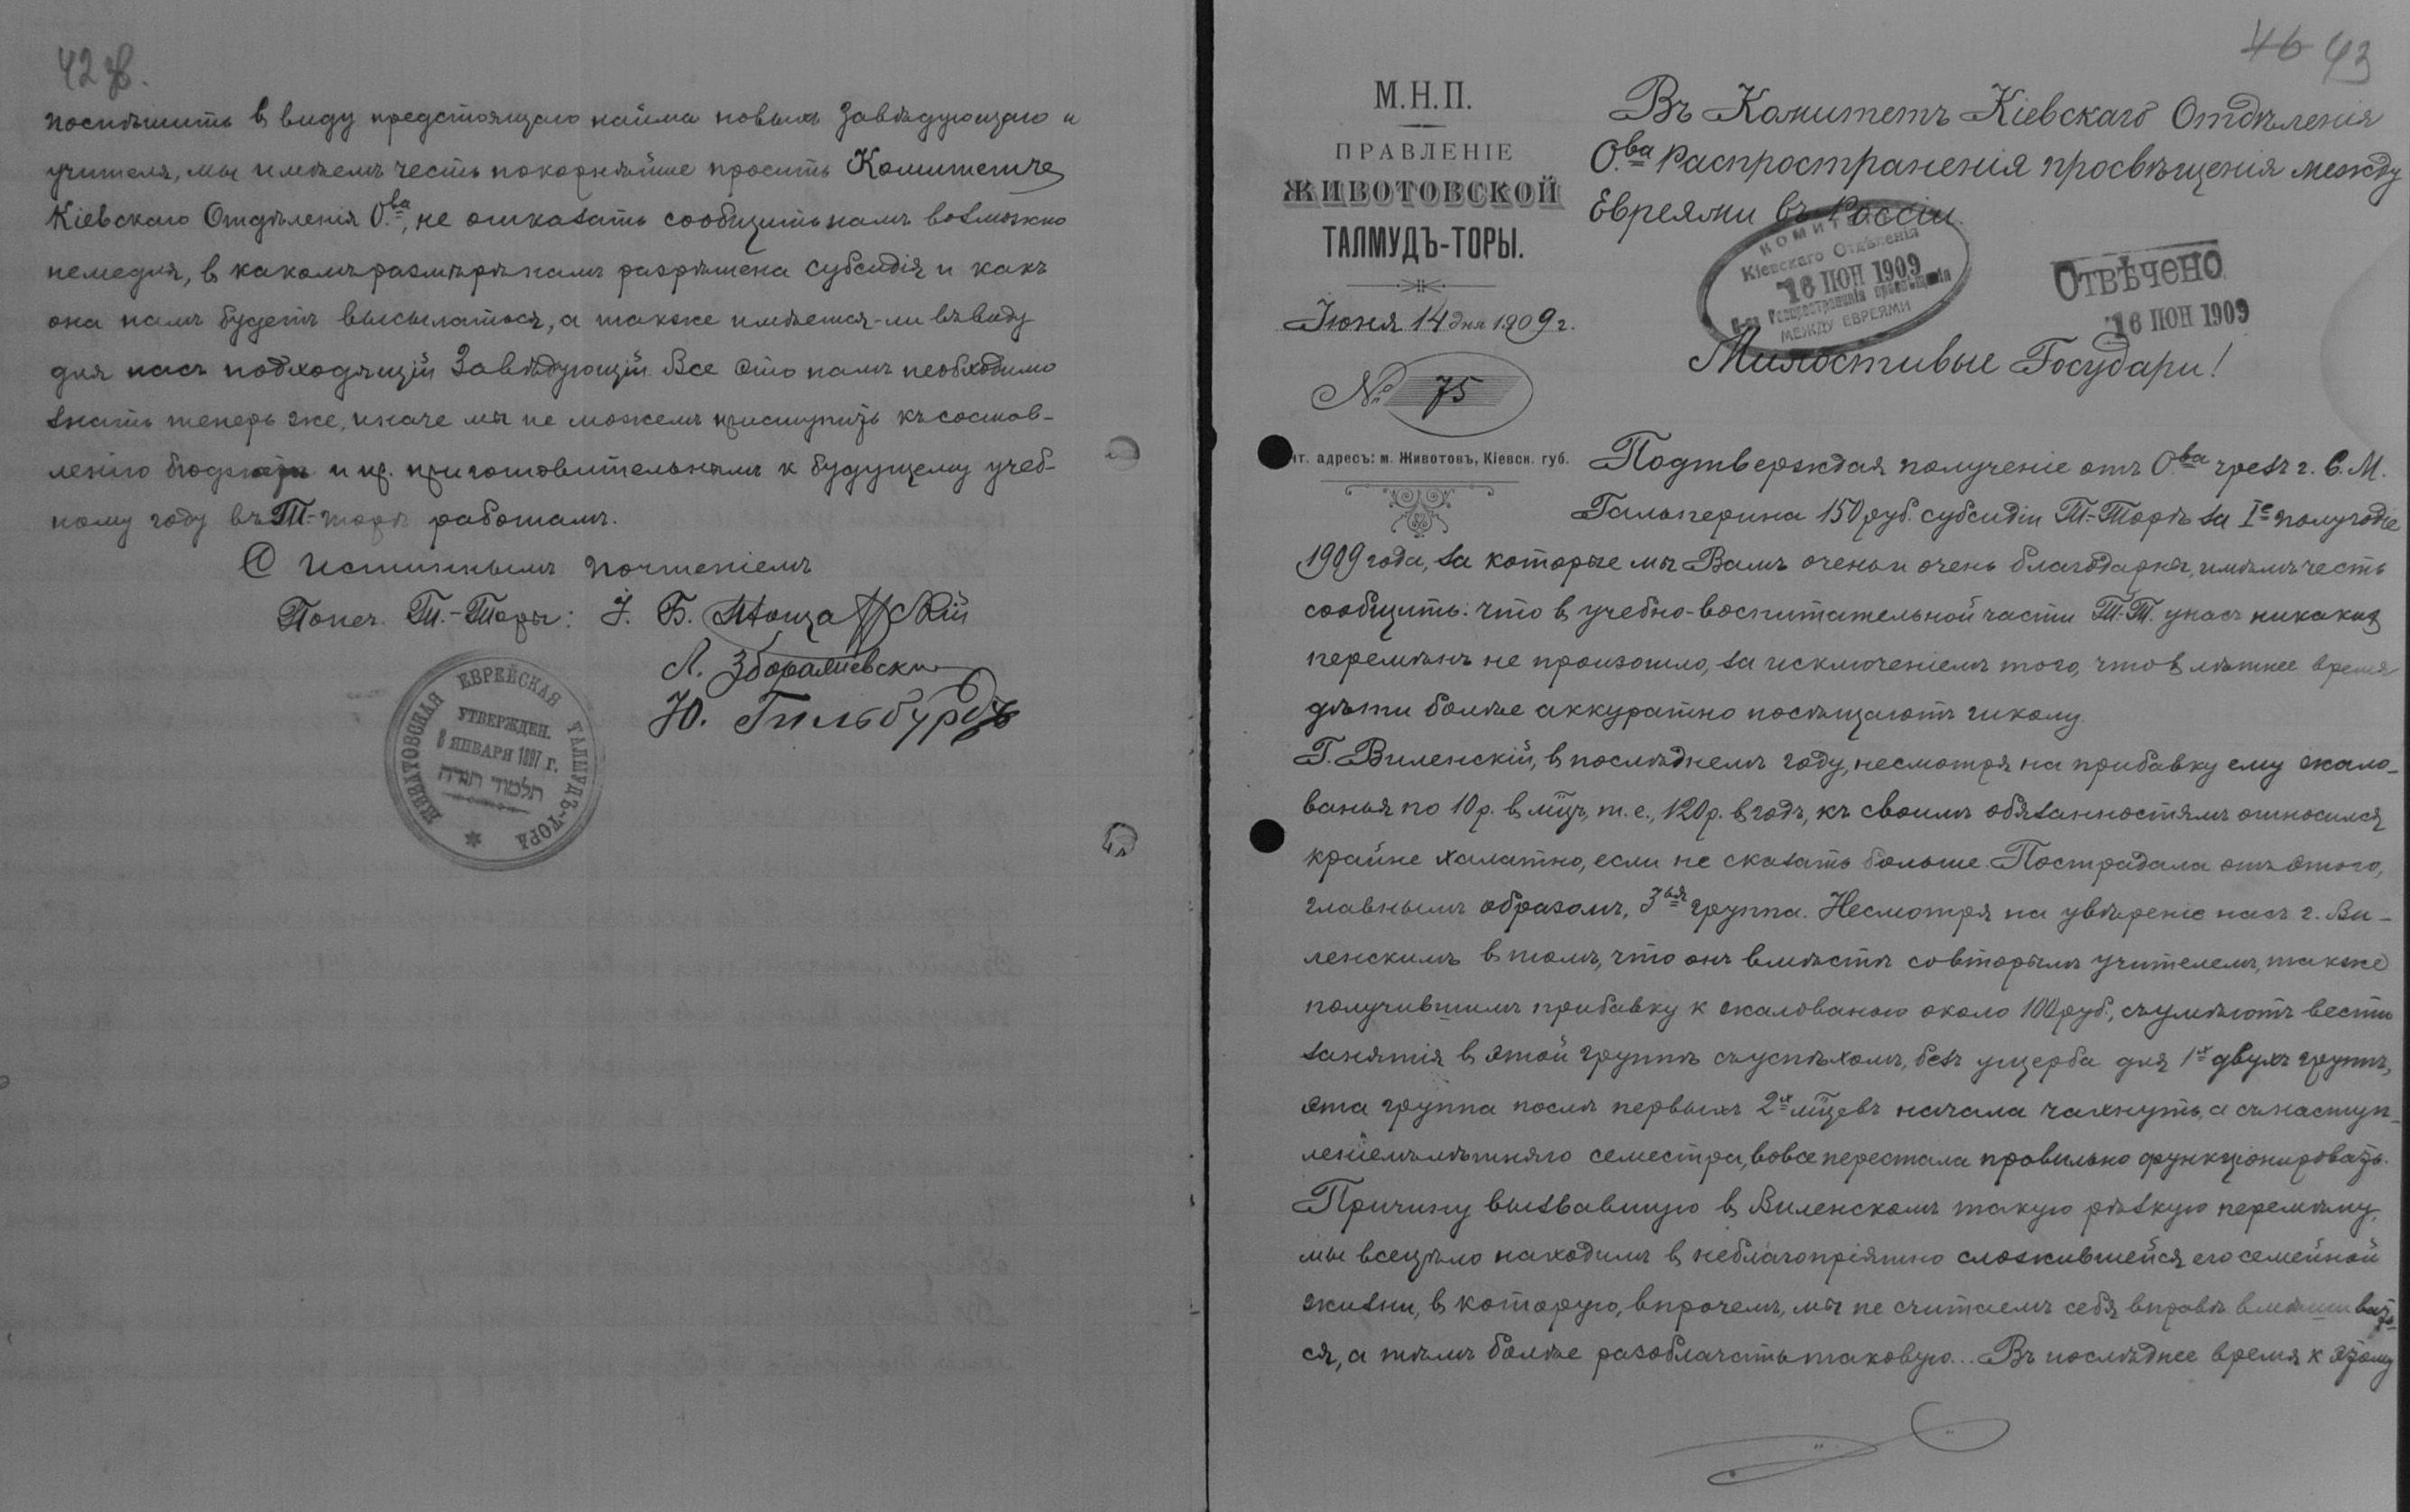 42 об.
поспѣшить въ виду предстоящаго найма новыхъ завѣдующаго и
учителя, мы имѣемъ честь покорнѣйше просить Комитетъ
Кіевскаго Отдѣленія О.ва, не отказать сообщить намъ возможно
немедля, въ какомъ размѣрѣ намъ разрѣшена субсидія и какъ
она намъ будетъ высылаться, а также имѣется-ли въ виду
для насъ подходящій Завѣдующій. Все это намъ необходимо
знать теперь же, иначе мы не можемъ приступить къ состав-
ленію бюджета и пр. приготовительнымъ к будущему учеб-
ному году въ Т.-Торѣ работамъ.
С истиннымъ почтеніемъ
Попеч. Т.-Торы: І. Б.
Л. Збаражевскій
Ю. Гильбурдъ
ЖИВАТОВСКАЯ ЕВРЕЙСКАЯ ТАЛМУДЪ-ТОРА
УТВЕРЖДЕН.
8 ЯНВАРЯ 1897 г.
תלמוד תורה
46 43
М.Н.П.
ПРАВЛЕНІЕ
ЖИВОТОВСКОЙ
ТАЛМУДЪ-ТОРЫ.
Іюня 14 дня 1909 г.
№ 75
чт. адресъ: м. Животовъ, Кіевск. губ.
Въ Комитетъ Кіевскаго Отдѣленія
О.ва Распространенія просвѣщенія между
Евреями въ Россіи.
КОМИТЕТЪ
Кіевскаго Отдѣленія
16 ІЮН 1909
О-ва Распространенія просвѣщенія
МЕЖДУ ЕВРЕЯМИ
ОТВѢЧЕНО
16 ІЮН 1909
Милостивые Государи!
Подтверждая полученіе отъ О.ва чрезъ г. С. М.
Гальперина 150 руб. субсидіи Т.-Торѣ за Iе полугодіе
1909 года, за которые мы Вамъ очень и очень благодарны, имѣемъ честь
сообщить: что въ учебно-воспитательной части Т.-Т. у насъ никакихъ
перемѣнъ не произошло, за исключеніемъ того, что въ лѣтнее время
дѣти болѣе аккуратно посѣщаютъ школу.
Г. Виленскій, въ послѣднемъ году, несмотря на прибавку ему жало-
ванья по 10 р. въ мѣц., т. е., 120 р. въ годъ, къ своимъ обязанностямъ относился
крайне халатно, если не сказать больше. Пострадала отъ этого,
главнымъ образомъ, 3ья группа. Несмотря на увѣреніе насъ г. Ви-
ленскимъ въ томъ, что онъ вмѣстѣ со вторымъ учителемъ, также
получившимъ прибавку к жалованью около 100 руб., съумѣютъ вести
занятія въ этой группѣ съ успѣхомъ, безъ ущерба для 1х двухъ группъ,
эта группа послѣ первыхъ 2х мѣцевъ начала чахнуть, а съ наступ-
леніемъ лѣтняго семестра, вовсе перестала правильно функціонировать.
Причину вызвавшую въ Виленскомъ такую рѣзкую перемѣну,
мы всецѣло находимъ въ неблагопріятно сложившейся его семейной
жизни, въ которую, впрочемъ, мы не считаемъ себя вправѣ вмѣшивать-
ся, а тѣмъ болѣе разоблачать таковую... Въ послѣднее время к этому